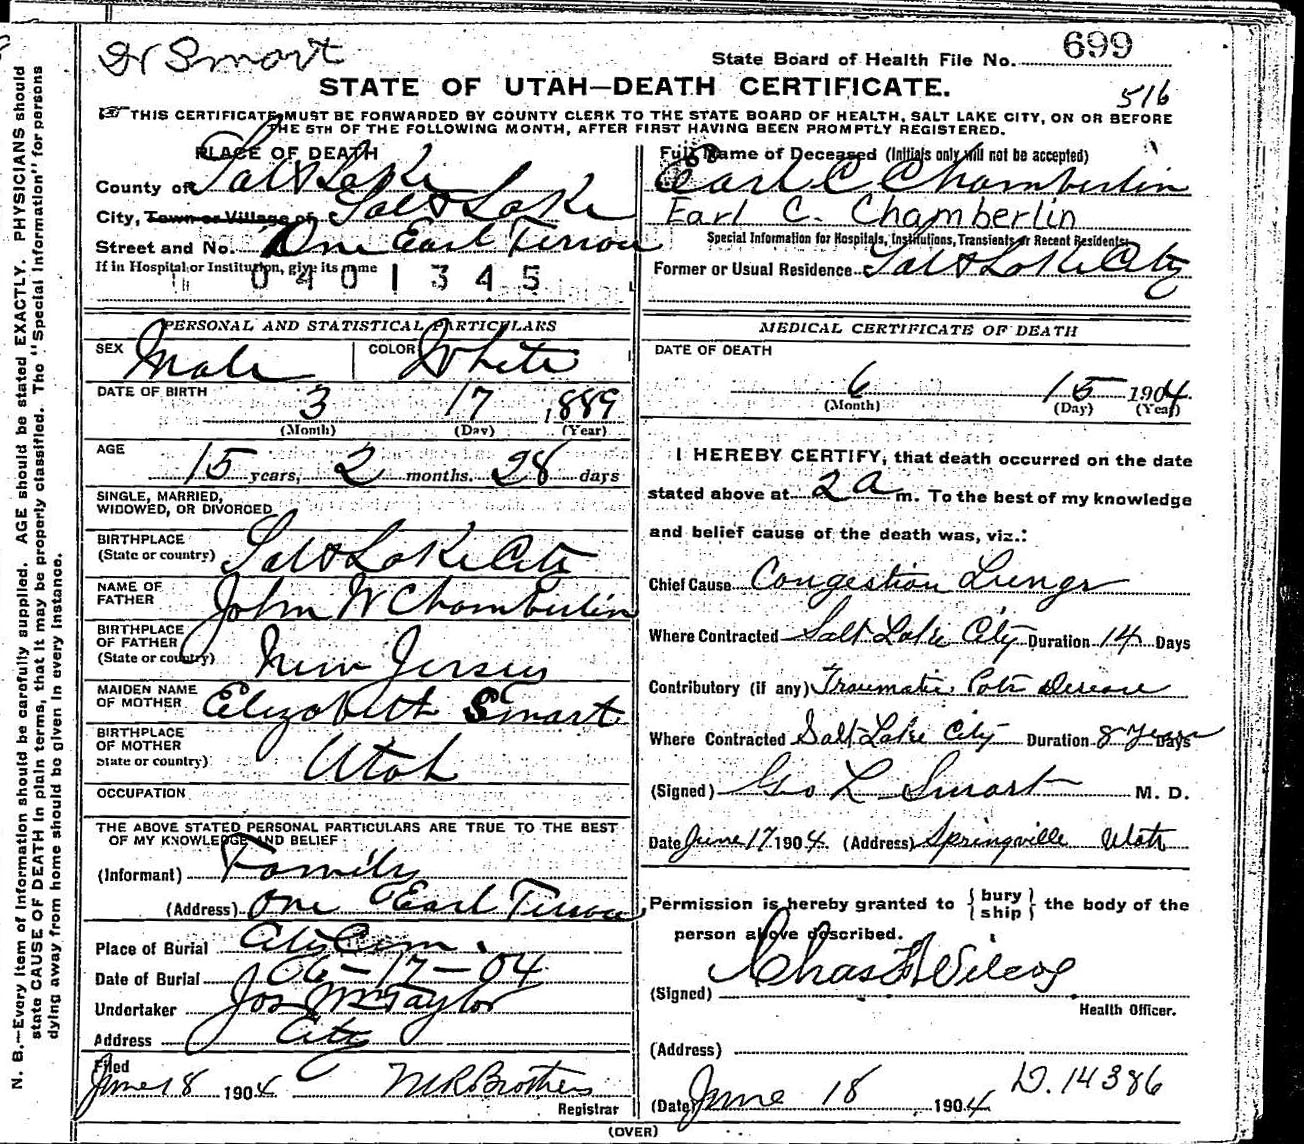 N. B.—Every item of information should be carefully supplied. AGE should be stated EXACTLY. PHYSICIANS should
state CAUSE OF DEATH in plain terms, that it may be properly classified. The "Special Information" for persons
dying away from home should be given in every instance.
Dr Smart
State Board of Health File No. 699
STATE OF UTAH—DEATH CERTIFICATE.
516
THIS CERTIFICATE MUST BE FORWARDED BY COUNTY CLERK TO THE STATE BOARD OF HEALTH, SALT LAKE CITY, ON OR BEFORE
THE 5TH OF THE FOLLOWING MONTH, AFTER FIRST HAVING BEEN PROMPTLY REGISTERED.
PLACE OF DEATH
County of Salt Lake
City, Town or Village of Salt Lake
Street and No. One Earl Terrace
If in Hospital or Institution, give its name
0401345
Full Name of Deceased (Initials only will not be accepted)
Earl C Chamberlin
Earl C. Chamberlin
Special Information for Hospitals, Institutions, Transients or Recent Residents:
Former or Usual Residence Salt Lake City
PERSONAL AND STATISTICAL PARTICULARS
SEX Male COLOR White
DATE OF BIRTH
3 17 1889
(Month) (Day) (Year)
AGE
15 years, 2 months. 28 days
SINGLE, MARRIED,
WIDOWED, OR DIVORCED
BIRTHPLACE
(State or country) Salt Lake City
NAME OF
FATHER John W Chamberlin
BIRTHPLACE
OF FATHER
(State or country) New Jersey
MAIDEN NAME
OF MOTHER Elizabeth Smart
BIRTHPLACE
OF MOTHER
State or country) Utah
OCCUPATION
THE ABOVE STATED PERSONAL PARTICULARS ARE TRUE TO THE BEST
OF MY KNOWLEDGE AND BELIEF
(Informant) Family
(Address) One Earl Terrace
Place of Burial City Cem.
Date of Burial 06-17-04
Undertaker Jos Wm Taylor
Address City
Filed
June 18 1904 M R Brothers
Registrar
MEDICAL CERTIFICATE OF DEATH
DATE OF DEATH
6 15 1904
(Month) (Day) (Year)
I HEREBY CERTIFY, that death occurred on the date
stated above at 2 a m. To the best of my knowledge
and belief cause of the death was, viz.:
Chief Cause Congestion Lungs
Where Contracted Salt Lake City Duration 14 Days
Contributory (if any) Traumatic Potts Disease
Where Contracted Salt Lake City Duration 8 Years Days
(Signed) Geo L Smart M. D.
Date June 17 1904. (Address) Springville Utah
Permission is hereby granted to { bury ship } the body of the
person above described.
(Signed) Chas F Wilcox
Health Officer.
(Address)
D. 14386
(Date) June 18 1904
(OVER)